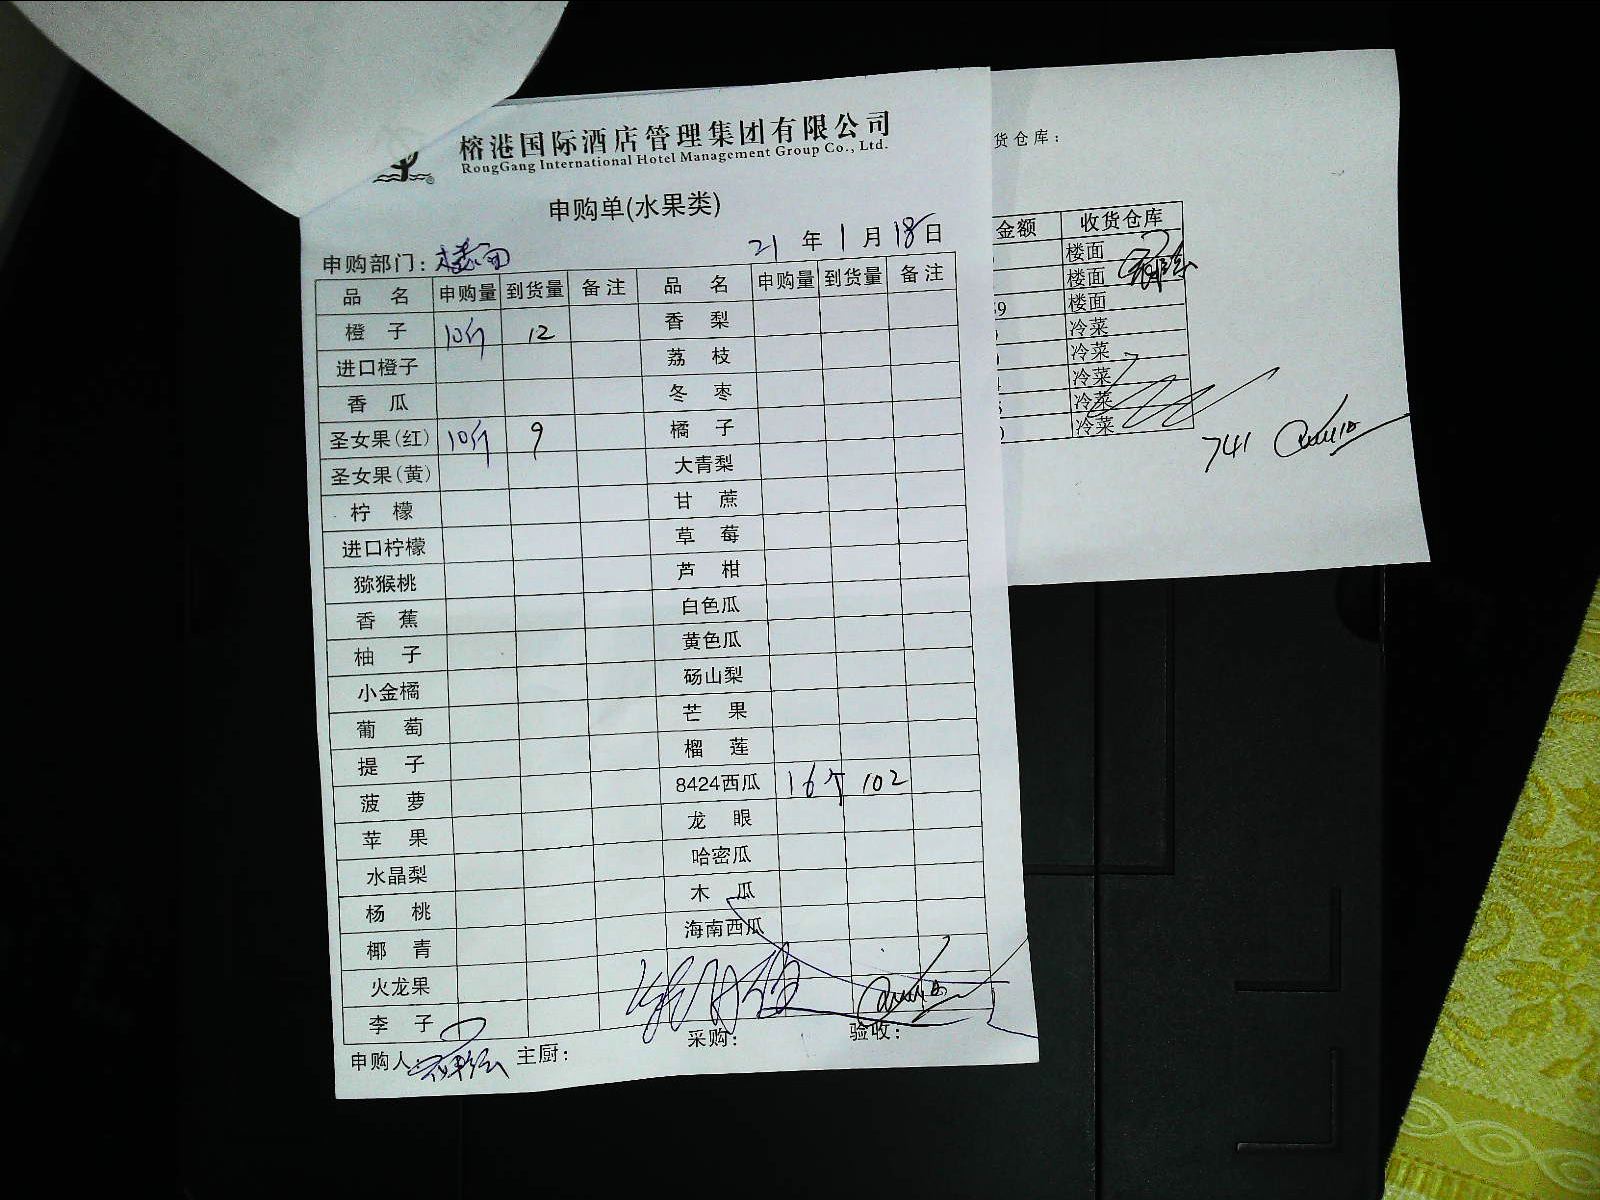 榕港国际酒店管理集团有限公司
RongGang International Hotel Management Group Co., Ltd.
申购单(水果类)
申购部门: 楼面 21 年 1 月 18 日
品 名 申购量 到货量 备注 品 名 申购量 到货量 备注
橙 子 10斤 12 香 梨
进口橙子 荔 枝
香 瓜 冬 枣
圣女果(红) 10斤 9 橘 子
圣女果(黄) 大青梨
柠 檬 甘 蔗
进口柠檬 草 莓
猕猴桃 芦 柑
香 蕉 白色瓜
柚 子 黄色瓜
小金橘 砀山梨
葡 萄 芒 果
提 子 榴 莲
菠 萝 8424西瓜 16个 102
苹 果 龙 眼
水晶梨 哈密瓜
杨 桃 木 瓜
椰 青 海南西瓜
火龙果
李 子
申购人: 主厨: 采购: 验收:
货仓库:
金额 收货仓库
楼面
楼面
9 楼面
冷菜
冷菜
冷菜
冷菜
冷菜
741